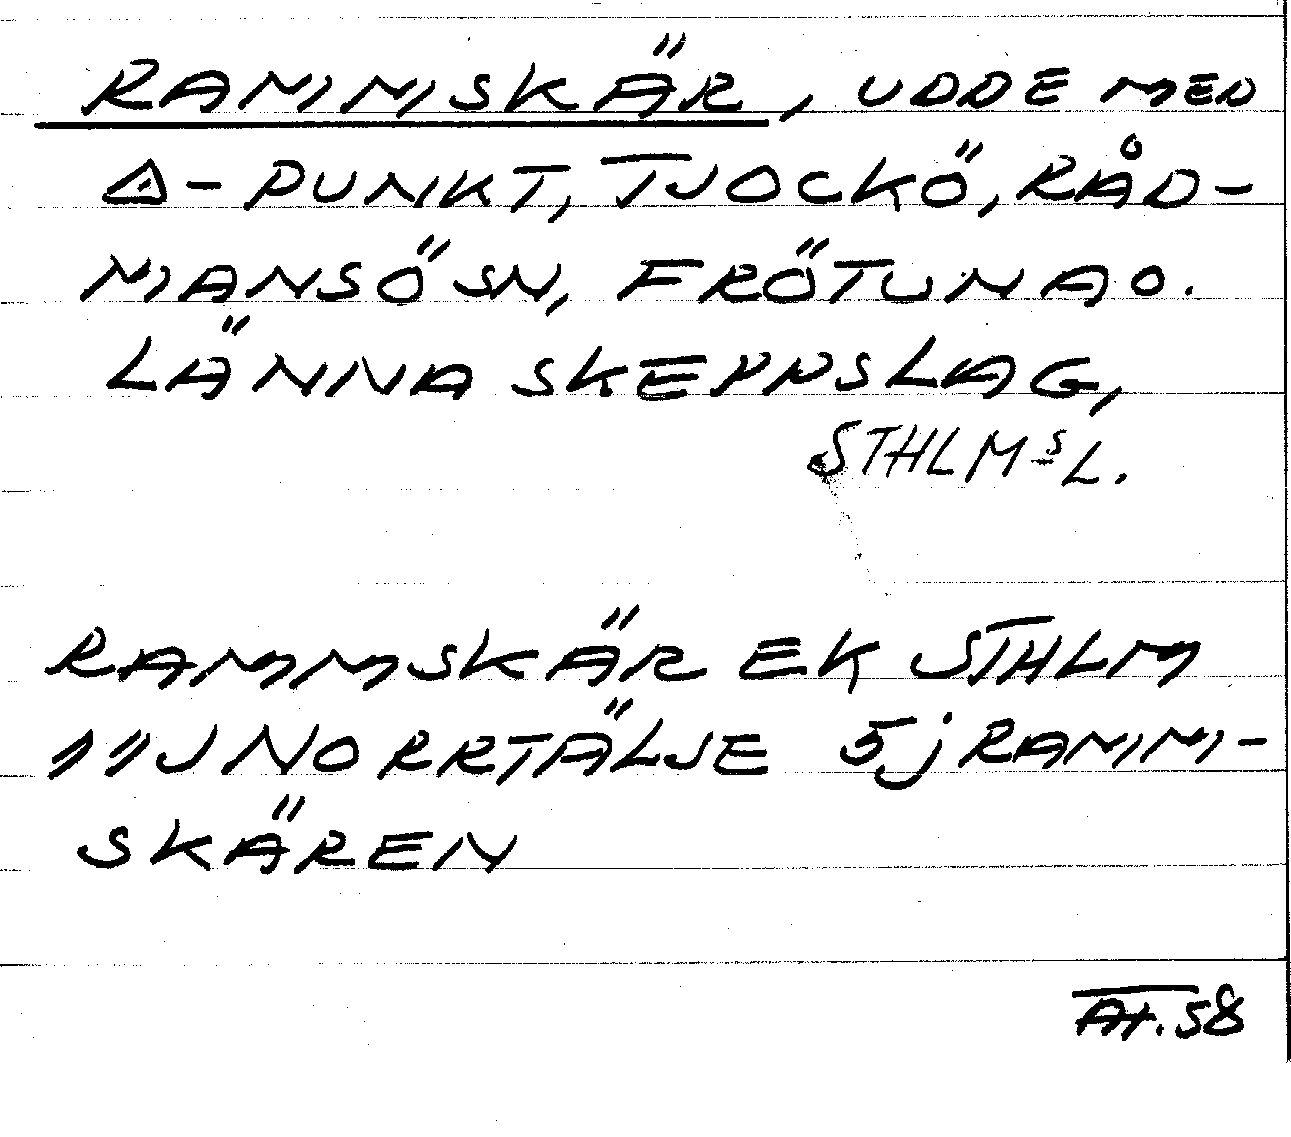 RAMMSKÄR, UDDE MED
△-PUNKT, TJOCKÖ, RÅD-
MANSÖ SN, FRÖTUNA O.
LÄNNA SKEPPSLAG,
STHLMS L.
RAMMSKÄR EK STHLM
11 IJ NORRTÄLJE 5j RAMM-
SKÄREN
58